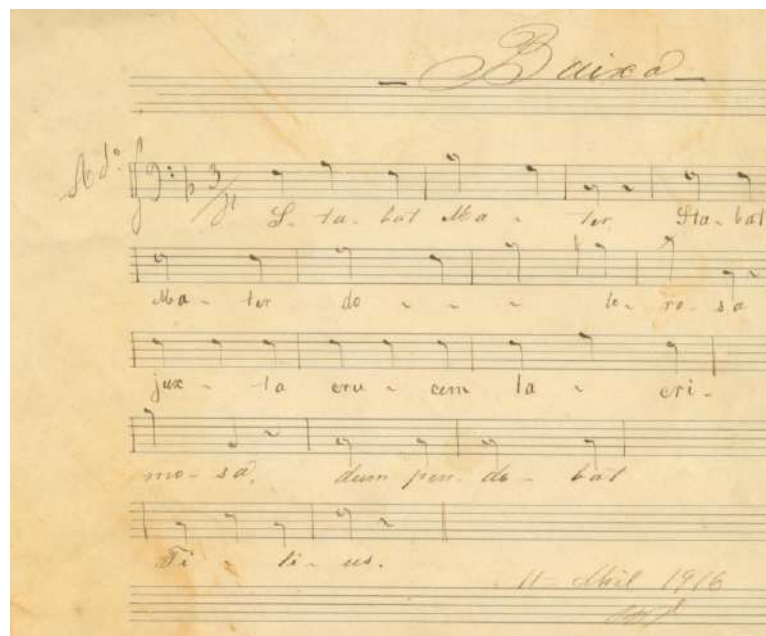 Baixo
Ado.
S- ta- bat Ma - ter Sta- bat
Ma - ter do - - - lo- ro- sa
jux - ta cru - cem la - cri-
mo- sa, dum pen- de- bat
Fi - li- us.
11- Abril 1916